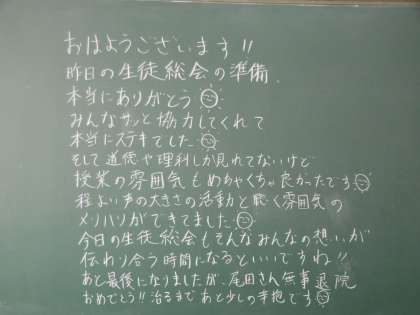 おはようございます!!
昨日の生徒総会の準備、
本当にありがとう
みんなサッと協力してくれて
本当にステキでした
そして道徳や理科しか見れてないけど
授業の雰囲気もめちゃくちゃ良かったです
程よい声の大きさの活動と聴く雰囲気の
メリハリができてました
今日の生徒総会もそんなみんなの想いが
伝わり合う時間になるといいですね!!
あと最後になりましたが、尾田さん無事退院
おめでとう!!治るまであと少しの辛抱です